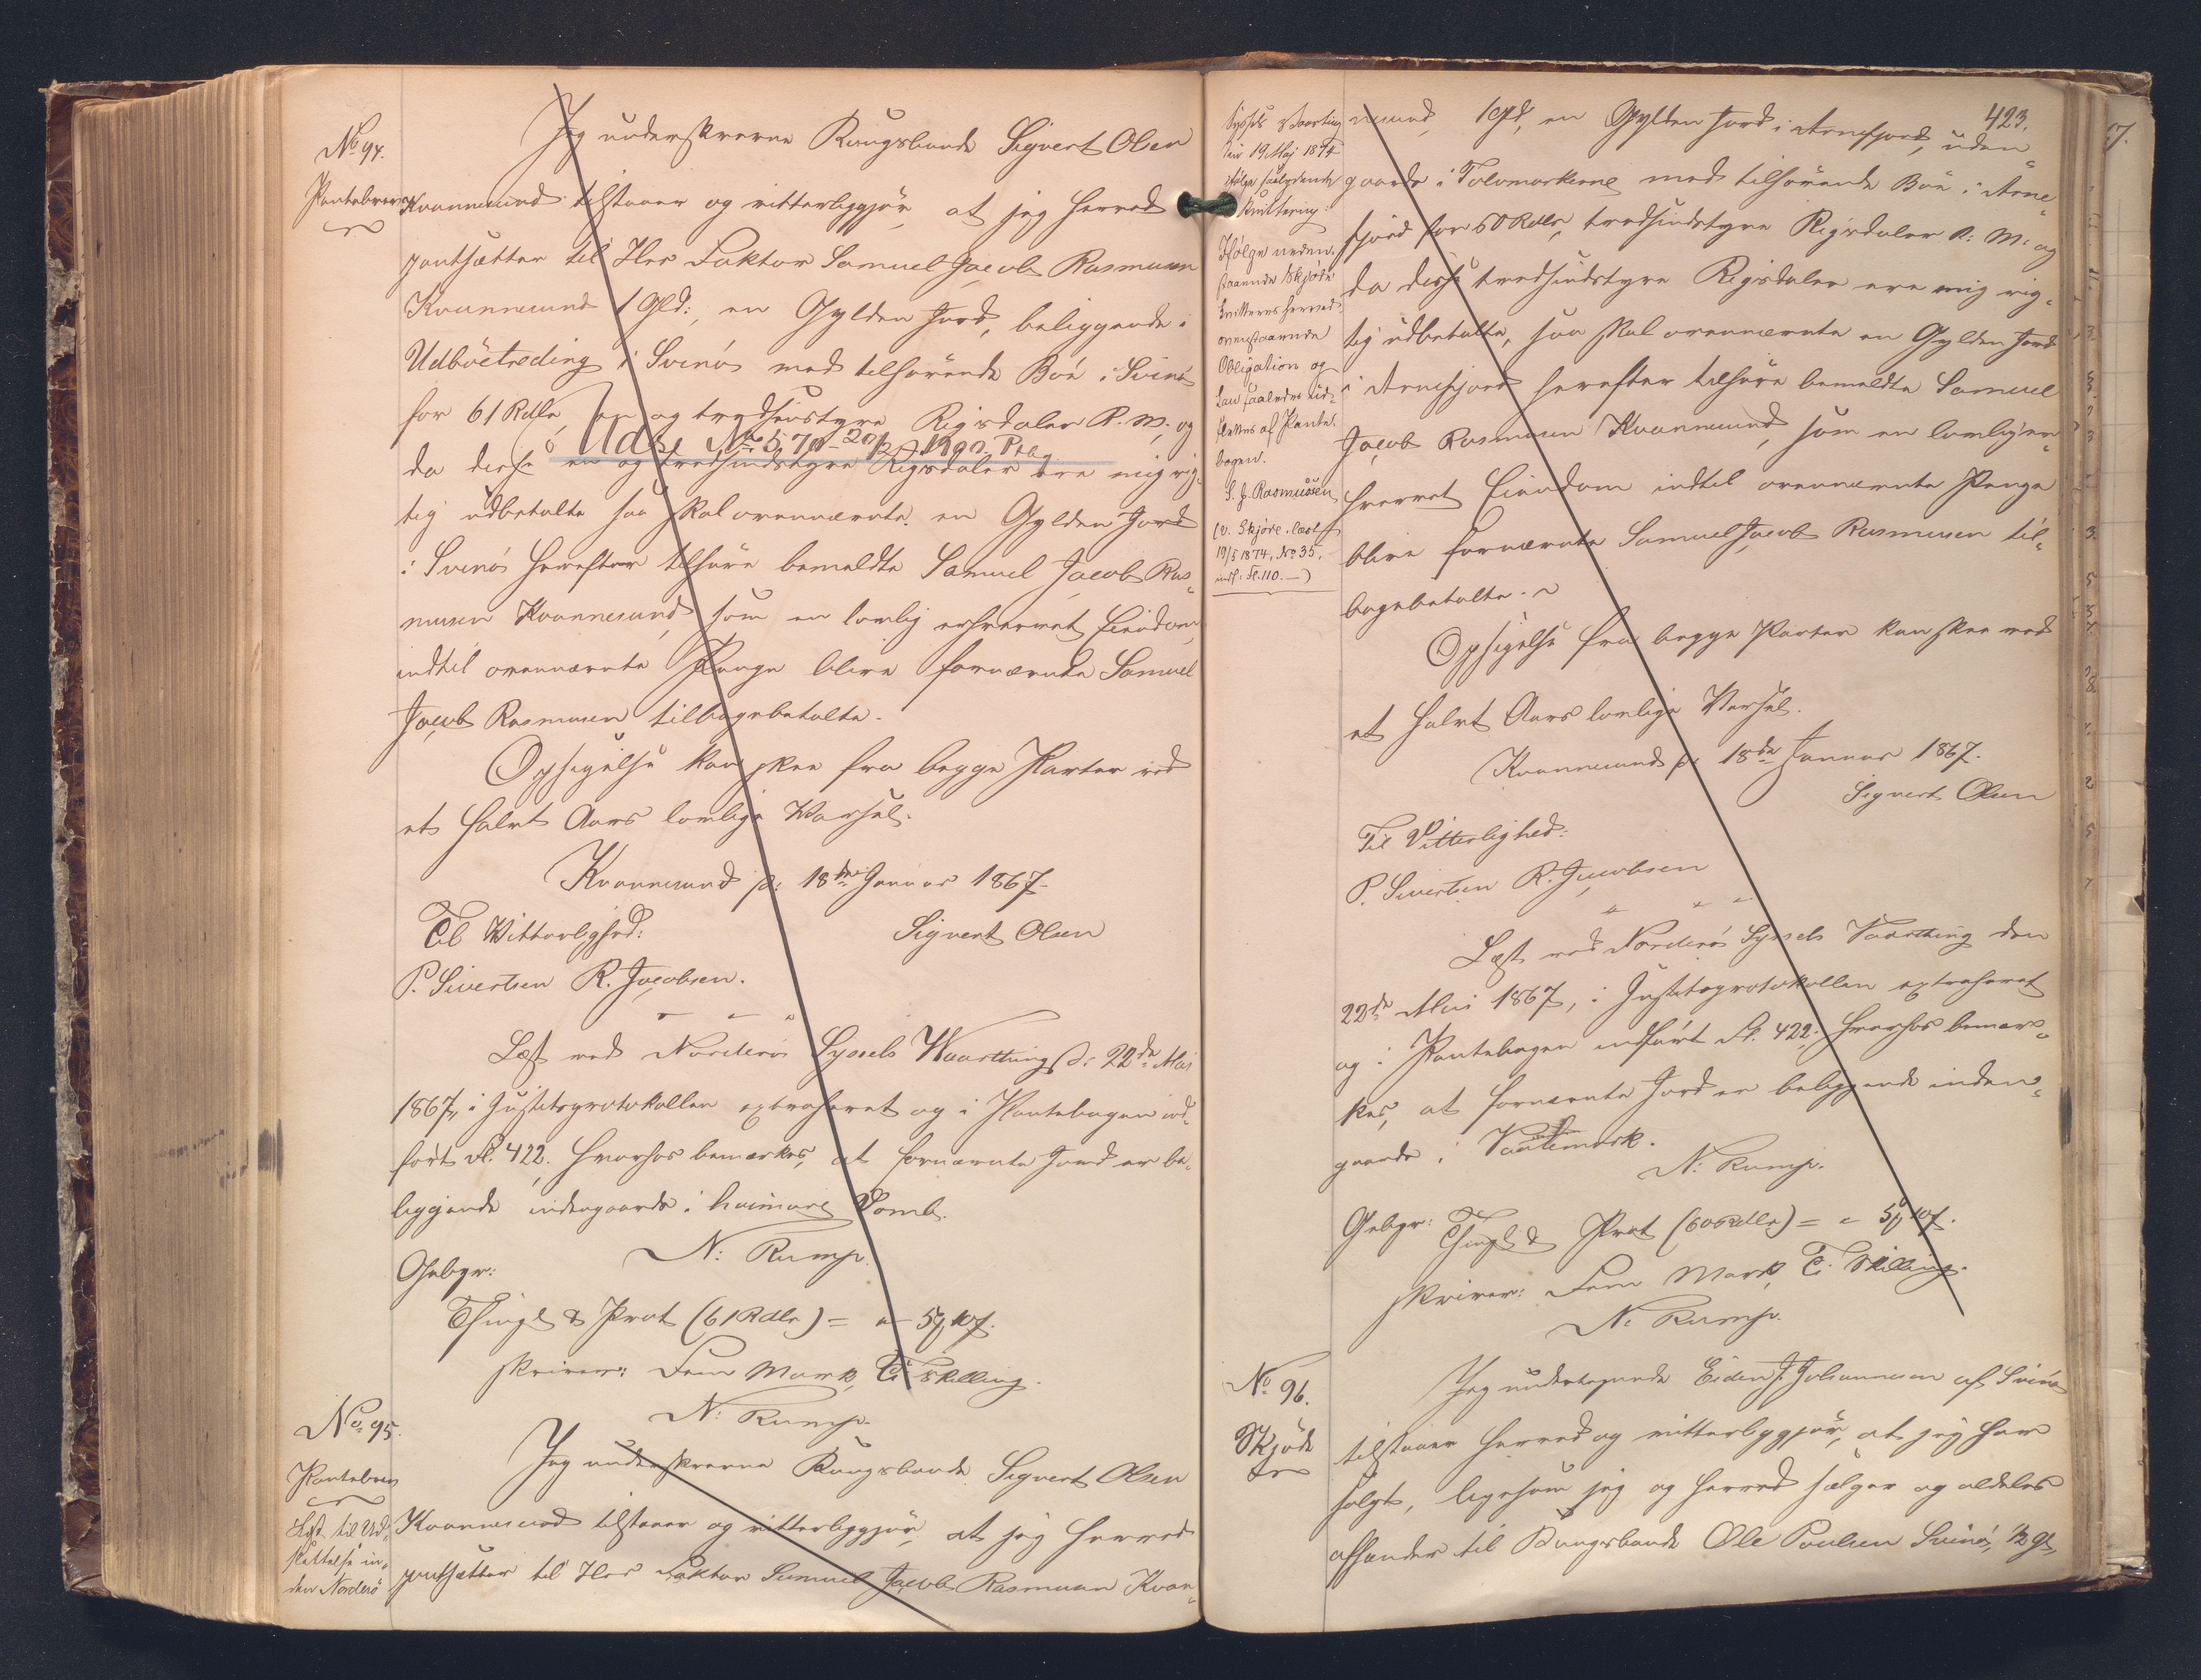 No 94.
Pantebrev
Jeg underskrevne Kongsbonde Sigvert Olsen
Kvannesund tilstaaer og vitterliggjör, at jeg herved
pantsætter til Herr Faktor Samuel Jacob Rasmusen
Kvannesund 1 Gld:, en Gylden Jord, beliggende i
Udböetreding i Svinö med tilhörende Böe i Svinö
for 61 Rdlr, en og tredsindstyve Rigsdaler R. M. og
Uds. No 570 - 20/12 1900. Ptbg.
da disse en og tredsindstyve Rigsdaler ere mig rig-
tig udbetalte saa skal ovennævnte en Gylden Jord
i Svinö herefter tilhöre bemeldte Samuel Jacob Ras-
musen Kvannesund som en lovlig erhvervet Eiendom,
indtil ovennævnte Penge blive fornævnte Samuel
Jacob Rasmusen tilbagebetalte.
Opsigelse kan skee fra begge Parter med
et halvt Aars lovlige Varsel.
Kvannesund p: 18de Januar 1867.
Til Vitterlighed: Sigvert Olsen
P. Sivertsen R. Jacobsen.
Læst ved Norderö Syssels Vaarthing d: 22de Mai
1867, i Justitsprotokollen extraheret og i Pantebogen ind-
fört Fl. 422. Hvorhos bemærkes, at fornævnte Jord er be-
liggende indengaards i heimare Tomb.
N: Rump.
Gebyr:
Thingl & Prot (61 Rdlr) = " 5 10.
skriver: Fem Mark, Ti Skilling.
N: Rump.
No 95.
Pantebrev
Læst til Ud-
slettelse in-
den Norderö
Jeg underskrevne Kongsbonde Sigvert Olsen
Kvannesund tilstaaer og vitterliggjör, at jeg herved
pantsætter til Herr Faktor Samuel Jacob Rasmusen Kvan-
423.
Syssels Vaarting
den 19 Maj 1874
ifölge saalydende
Kvittering:
Ifölge neden-
staaende Skjöde
kvitteres herved
ovenstaaende
Obligation og
kan saaledes ud-
slettes af Pante-
bogen.
S. J. Rasmussen
(v. Skjöde læst
19/5 1874, No 35,
indf: Fl. 110. —)
nesund, 1 Gld, en Gylden Jord i Arnefjord, uden-
gaards i Tolvmarkerne med tilhörende Böe i Arne-
fjord for 60 Rdlr, tredsindstyve Rigsdaler R: M: og
da disse tredsindstyve Rigsdaler ere mig rig-
tig udbetalte, saa skal ovennævnte en Gylden Jord
i Arnefjord herefter tilhöre bemeldte Samuel
Jacob Rasmusen Kvannesund, som en lovlig er-
hvervet Eiendom indtil ovennævnte Penge
blive fornævnte Samuel Jacob Rasmusen til-
bagebetalte.
Opsigelse fra begge Parter kan skee med
et halvt Aars lovlige Varsel.
Kvannesund p: 18de Januar 1867.
Sigvert Olsen
Til Vitterlighed:
P. Sivertsen R. Jacobsen
Læst ved Norderö Syssels Vaarthing den
22de Mai 1867, i Justitsprotokollen extraheret
og i Pantebogen indfört Fl. 422. Hvorhos bemær-
kes, at fornævnte Jord er beliggende inden-
gaards i
N: Rump.
Gebyr: Thingl & Prot (60 Rdlr) = " 5 10.
skriver: Fem Mark, Ti Skilling.
N: Rump.
No 96.
Skjöde
Jeg undertegnede J. Johannesen af Svinö
tilstaaer herved og vitterliggjör, at jeg har
solgt, ligesom jeg og herved sælger og aldeles
afhænder til Kongsbonde Ole Poulsen Svinö, 1/2 Gl,